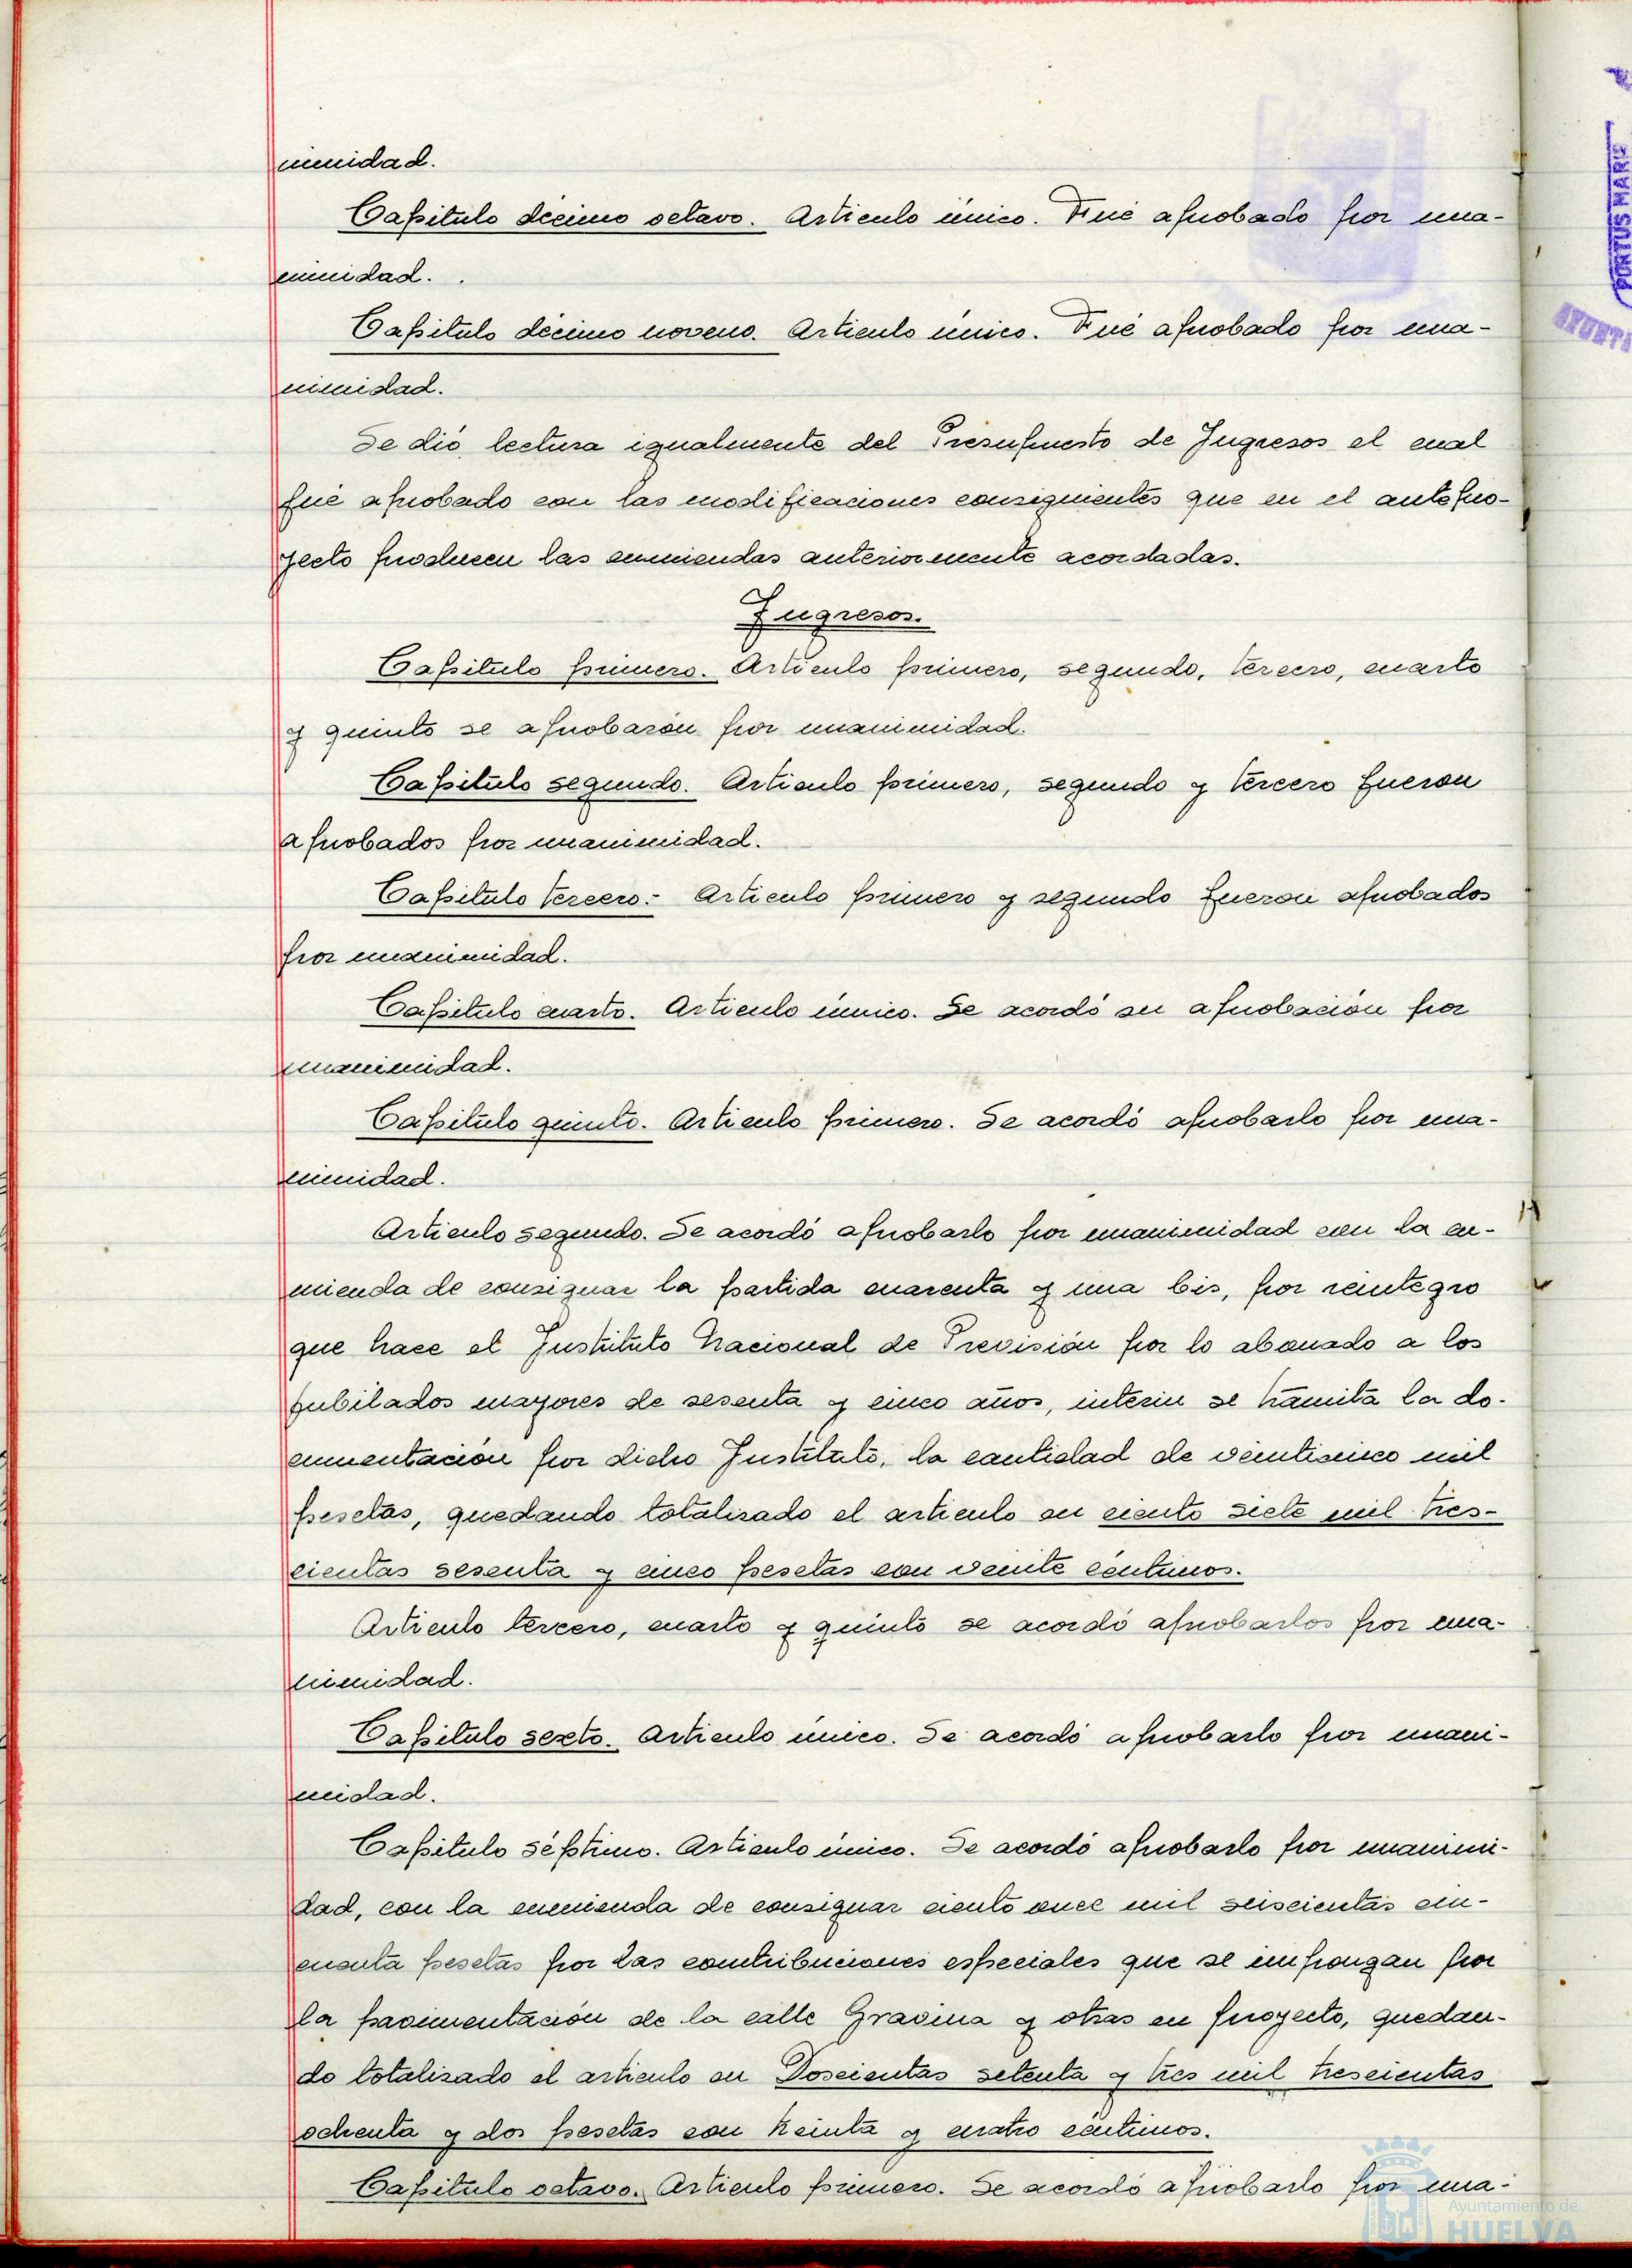 nimidad.
Capitulo décimo octavo. Articulo único. Fué aprobado por una-
nimidad.
Capitulo décimo noveno. Articulo único. Fué aprobado por una-
nimidad.
Se dió lectura igualmente del Presupuesto de Ingresos el cual
fué aprobado con las modificaciones consiguientes que en el antepro-
yecto producen las enmiendas anteriormente acordadas.
Ingresos.
Capitulo primero. Articulo primero, segundo, tercero, cuarto
y quinto se aprobarón por unanimidad.
Capitulo segundo. Articulo primero, segundo y tercero fueron
aprobados por unanimidad.
Capitulo tercero:- Articulo primero y segundo fueron aprobados
por unanimidad.
Capitulo cuarto. Articulo único. Se acordó su aprobación por
unanimidad.
Capitulo quinto. Articulo primero. Se acordó aprobarlo por una-
nimidad.
Articulo segundo. Se acordó aprobarlo por unanimidad con la en-
mienda de consignar la partida cuarenta y una bis, por reintegro
que hace el Instituto Nacional de Previsión por lo abonado a los
jubilados mayores de sesenta y cinco años, interin se tramita la do-
cumentación por dicho Instituto, la cantidad de veinticinco mil
pesetas, quedando totalizado el articulo en ciento siete mil tres-
cientas sesenta y cinco pesetas con veinte céntimos.
Articulo tercero, cuarto y quinto se acordó aprobarlos por una-
nimidad.
Capitulo sexto. Articulo único. Se acordó aprobarlo por unani-
midad.
Capitulo séptimo. Articulo único. Se acordó aprobarlo por unanimi-
dad, con la enmienda de consignar ciento once mil seiscientas cin-
cuenta pesetas por las contribuciones especiales que se impongan por
la pavimentación de la calle Gravina y otras en proyecto, quedan-
do totalizado el articulo en Doscientas setenta y tres mil trescientas
ochenta y dos pesetas con treinta y cuatro céntimos.
Capitulo octavo. Articulo primero. Se acordó aprobarlo por una-
PORTUS MARIS
AYUNTA
Ayuntamiento de
HUELVA